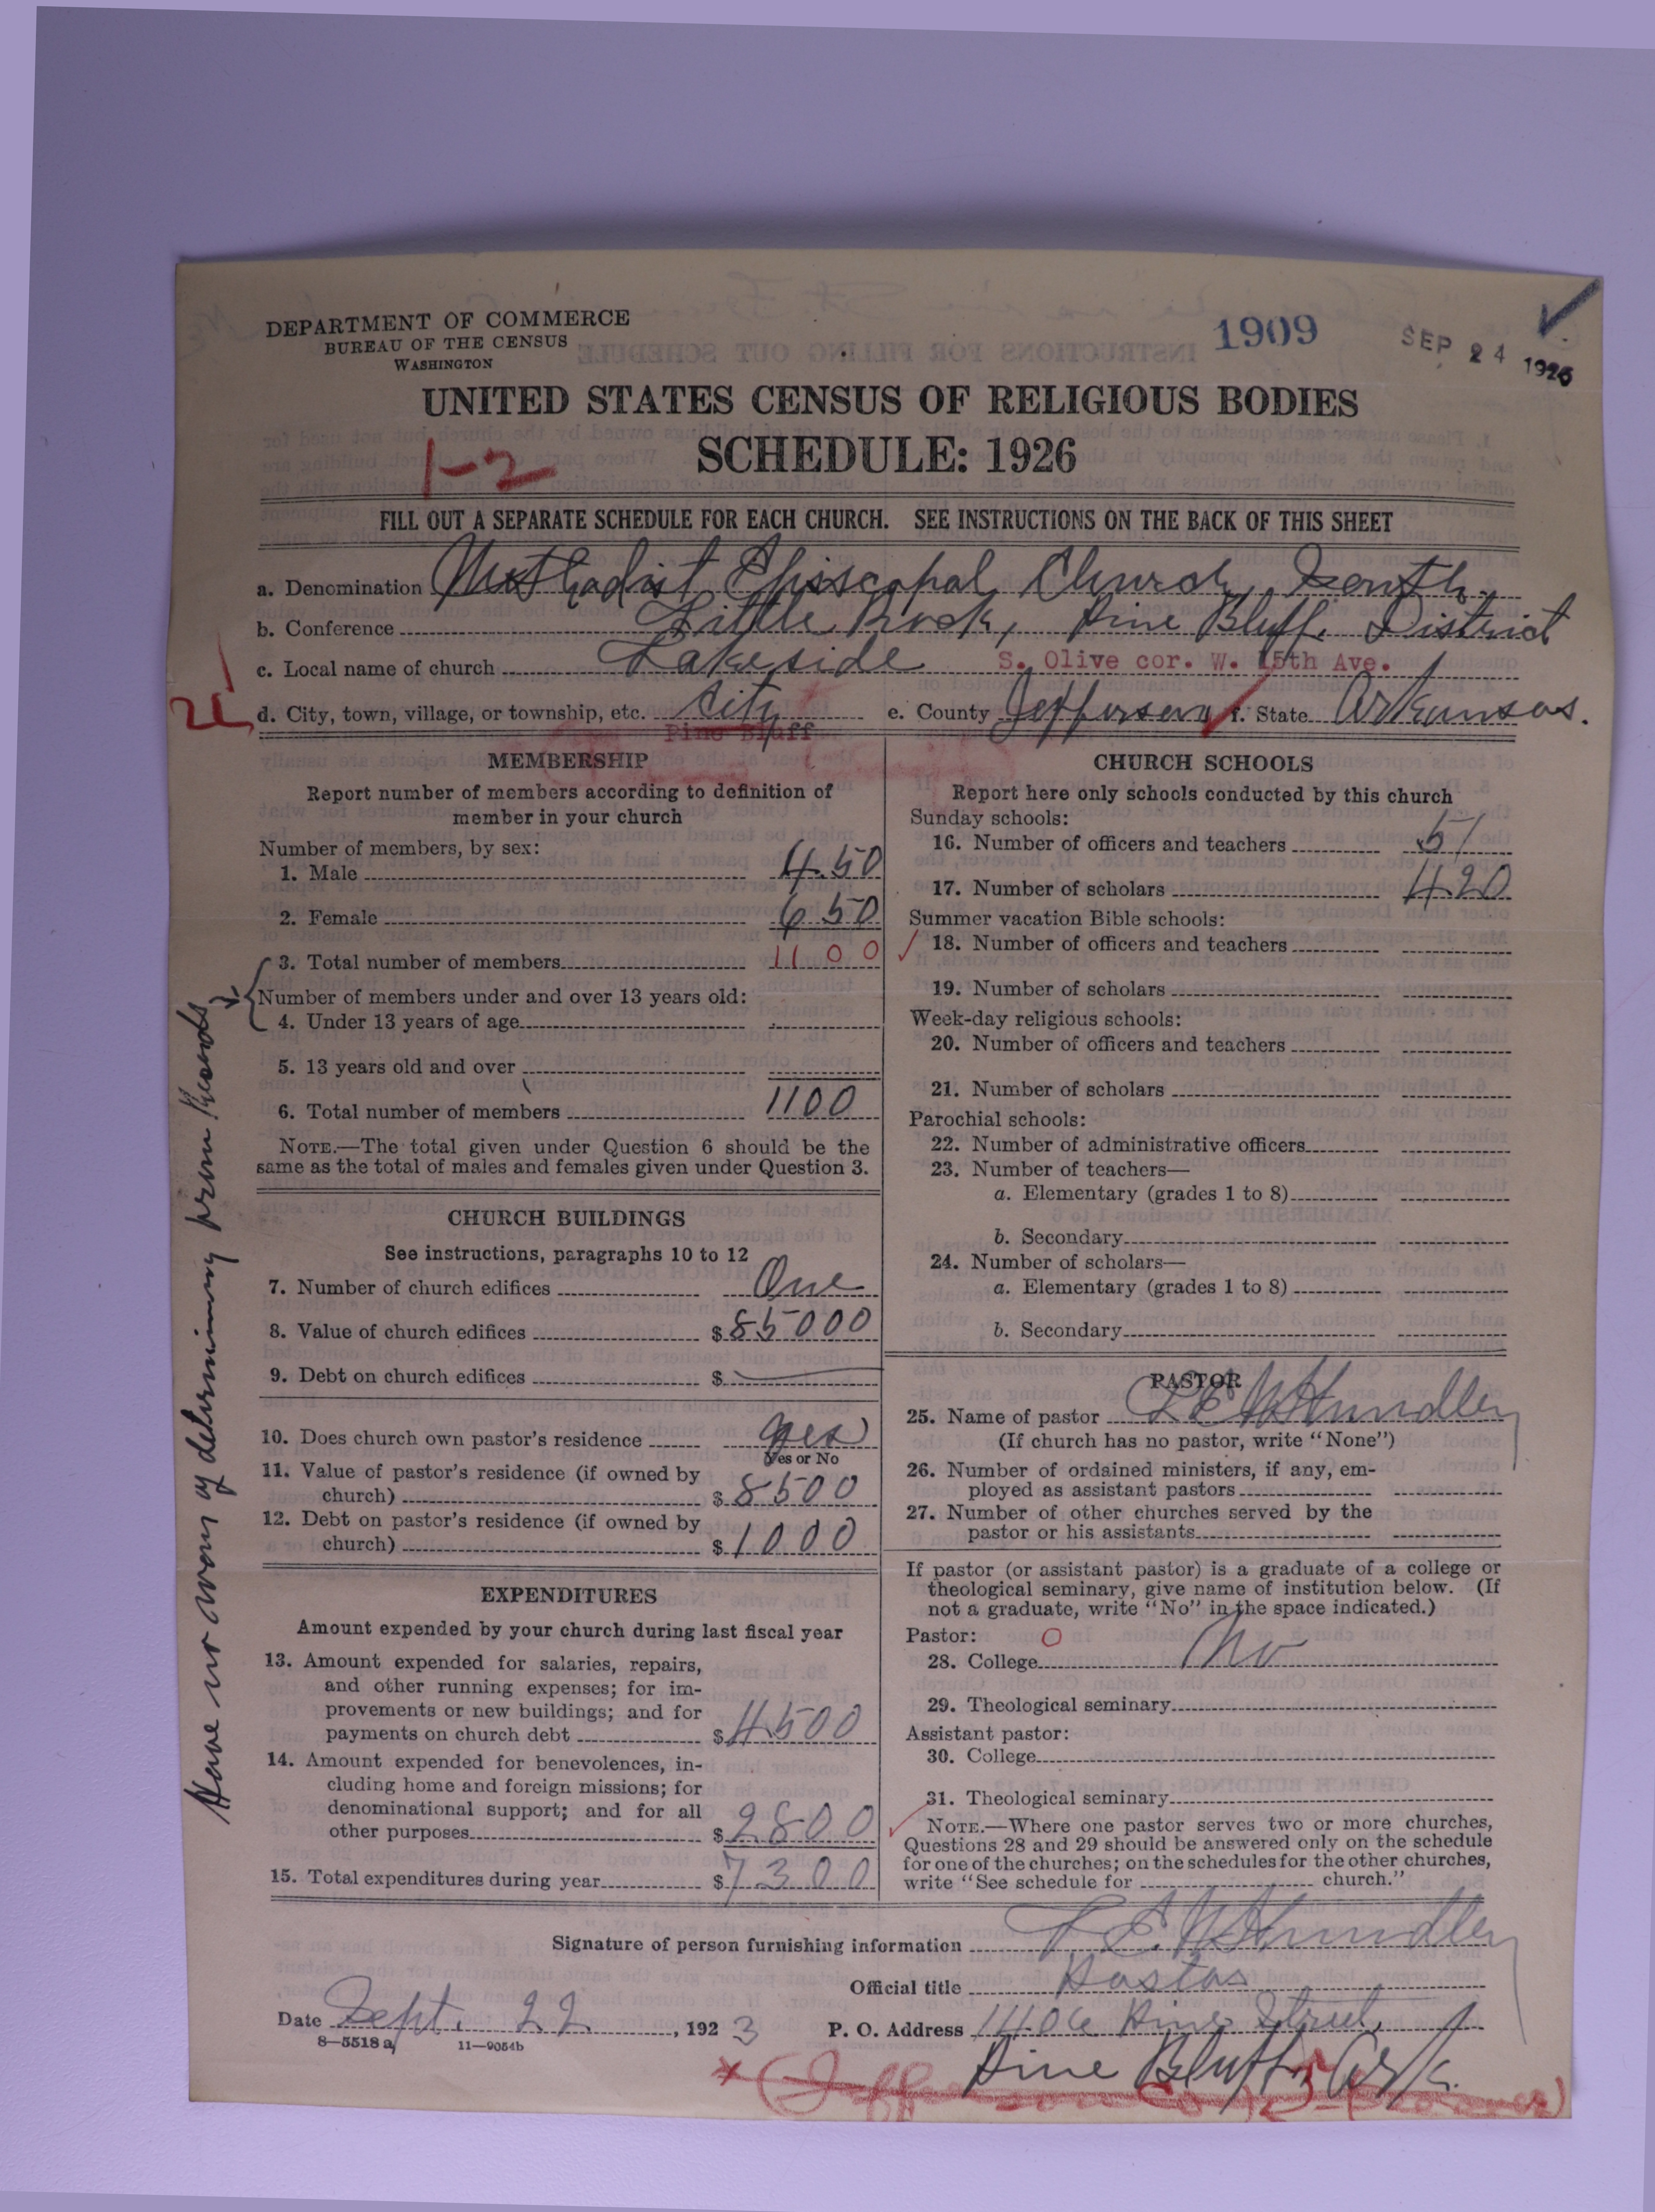 DEPARTMENT OF COMMERCE
BUREAU OF THE CENSUS
WASHINGTON
1909
SEP 24 1926
UNITED STATES CENSUS OF RELIGIOUS BODIES
SCHEDULE: 1926
1-2
FILL OUT A SEPARATE SCHEDULE FOR EACH CHURCH. SEE INSTRUCTIONS ON THE BACK OF THIS SHEET
a. Denomination Methodist Episcopal Church, South.
b. Conference Little Rock, Pine Bluff District
c. Local name of church Lakeside S. Olive cor. W. 15th Ave.
d. City, town, village, or township, etc. City e. County Jefferson f. State Arkansas.
Pine Bluff
MEMBERSHIP
Report number of members according to definition of
member in your church
Number of members, by sex:
1. Male 450
2. Female 650
3. Total number of members 1100
Number of members under and over 13 years old:
4. Under 13 years of age
5. 13 years old and over
6. Total number of members 1100
NOTE.—The total given under Question 6 should be the
same as the total of males and females given under Question 3.
Have no way of determining from Records
CHURCH BUILDINGS
See instructions, paragraphs 10 to 12
7. Number of church edifices One
8. Value of church edifices $85000
9. Debt on church edifices $
10. Does church own pastor's residence yes
Yes or No
11. Value of pastor's residence (if owned by
church) $8500
12. Debt on pastor's residence (if owned by
church) $1000
EXPENDITURES
Amount expended by your church during last fiscal year
13. Amount expended for salaries, repairs,
and other running expenses; for im-
provements or new buildings; and for
payments on church debt $4500
14. Amount expended for benevolences, in-
cluding home and foreign missions; for
denominational support; and for all
other purposes $2800
15. Total expenditures during year $7300
CHURCH SCHOOLS
Report here only schools conducted by this church
Sunday schools:
16. Number of officers and teachers 51
17. Number of scholars 420
Summer vacation Bible schools:
18. Number of officers and teachers
19. Number of scholars
Week-day religious schools:
20. Number of officers and teachers
21. Number of scholars
Parochial schools:
22. Number of administrative officers
23. Number of teachers—
a. Elementary (grades 1 to 8)
b. Secondary
24. Number of scholars—
a. Elementary (grades 1 to 8)
b. Secondary
PASTOR
25. Name of pastor
(If church has no pastor, write "None")
26. Number of ordained ministers, if any, em-
ployed as assistant pastors
27. Number of other churches served by the
pastor or his assistants
If pastor (or assistant pastor) is a graduate of a college or
theological seminary, give name of institution below. (If
not a graduate, write "No" in the space indicated.)
Pastor: 0
28. College No
29. Theological seminary
Assistant pastor:
30. College
31. Theological seminary
NOTE.—Where one pastor serves two or more churches,
Questions 28 and 29 should be answered only on the schedule
for one of the churches; on the schedules for the other churches,
write "See schedule for church."
Signature of person furnishing information
Official title Pastor
Date Sept. 22, 1923 P. O. Address 1406 Pine Street,
8—5518a 11—9054b
Pine Bluff, Ark.